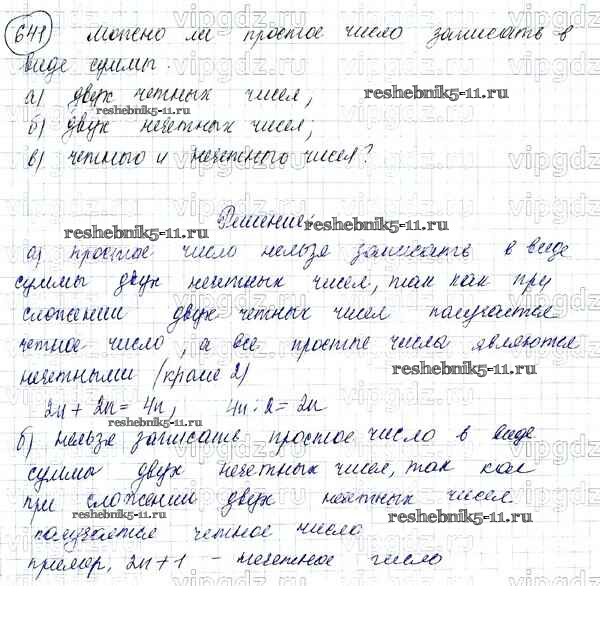 641 Можно ли простое число записать в
виде суммы:
а) двух четных чисел;
б) двух нечетных чисел;
в) четного и нечетного чисел?
reshebnik5-11.ru
reshebnik5-11.ru
Решение:
reshebnik5-11.ru
reshebnik5-11.ru
а) простое число нельзя записать в виде
суммы двух нечетных чисел, так как при
сложении двух четных чисел получается
четное число, а все простые числа являются
нечетными (кроме 2)
reshebnik5-11.ru
2n + 2n = 4n, 4n : 2 = 2n
reshebnik5-11.ru
б) нельзя записать простое число в виде
суммы двух нечетных чисел, так как
при сложении двух нечетных чисел
reshebnik5-11.ru
получается четное число
пример, 2n+1 – нечетное число
vipgdz.ru